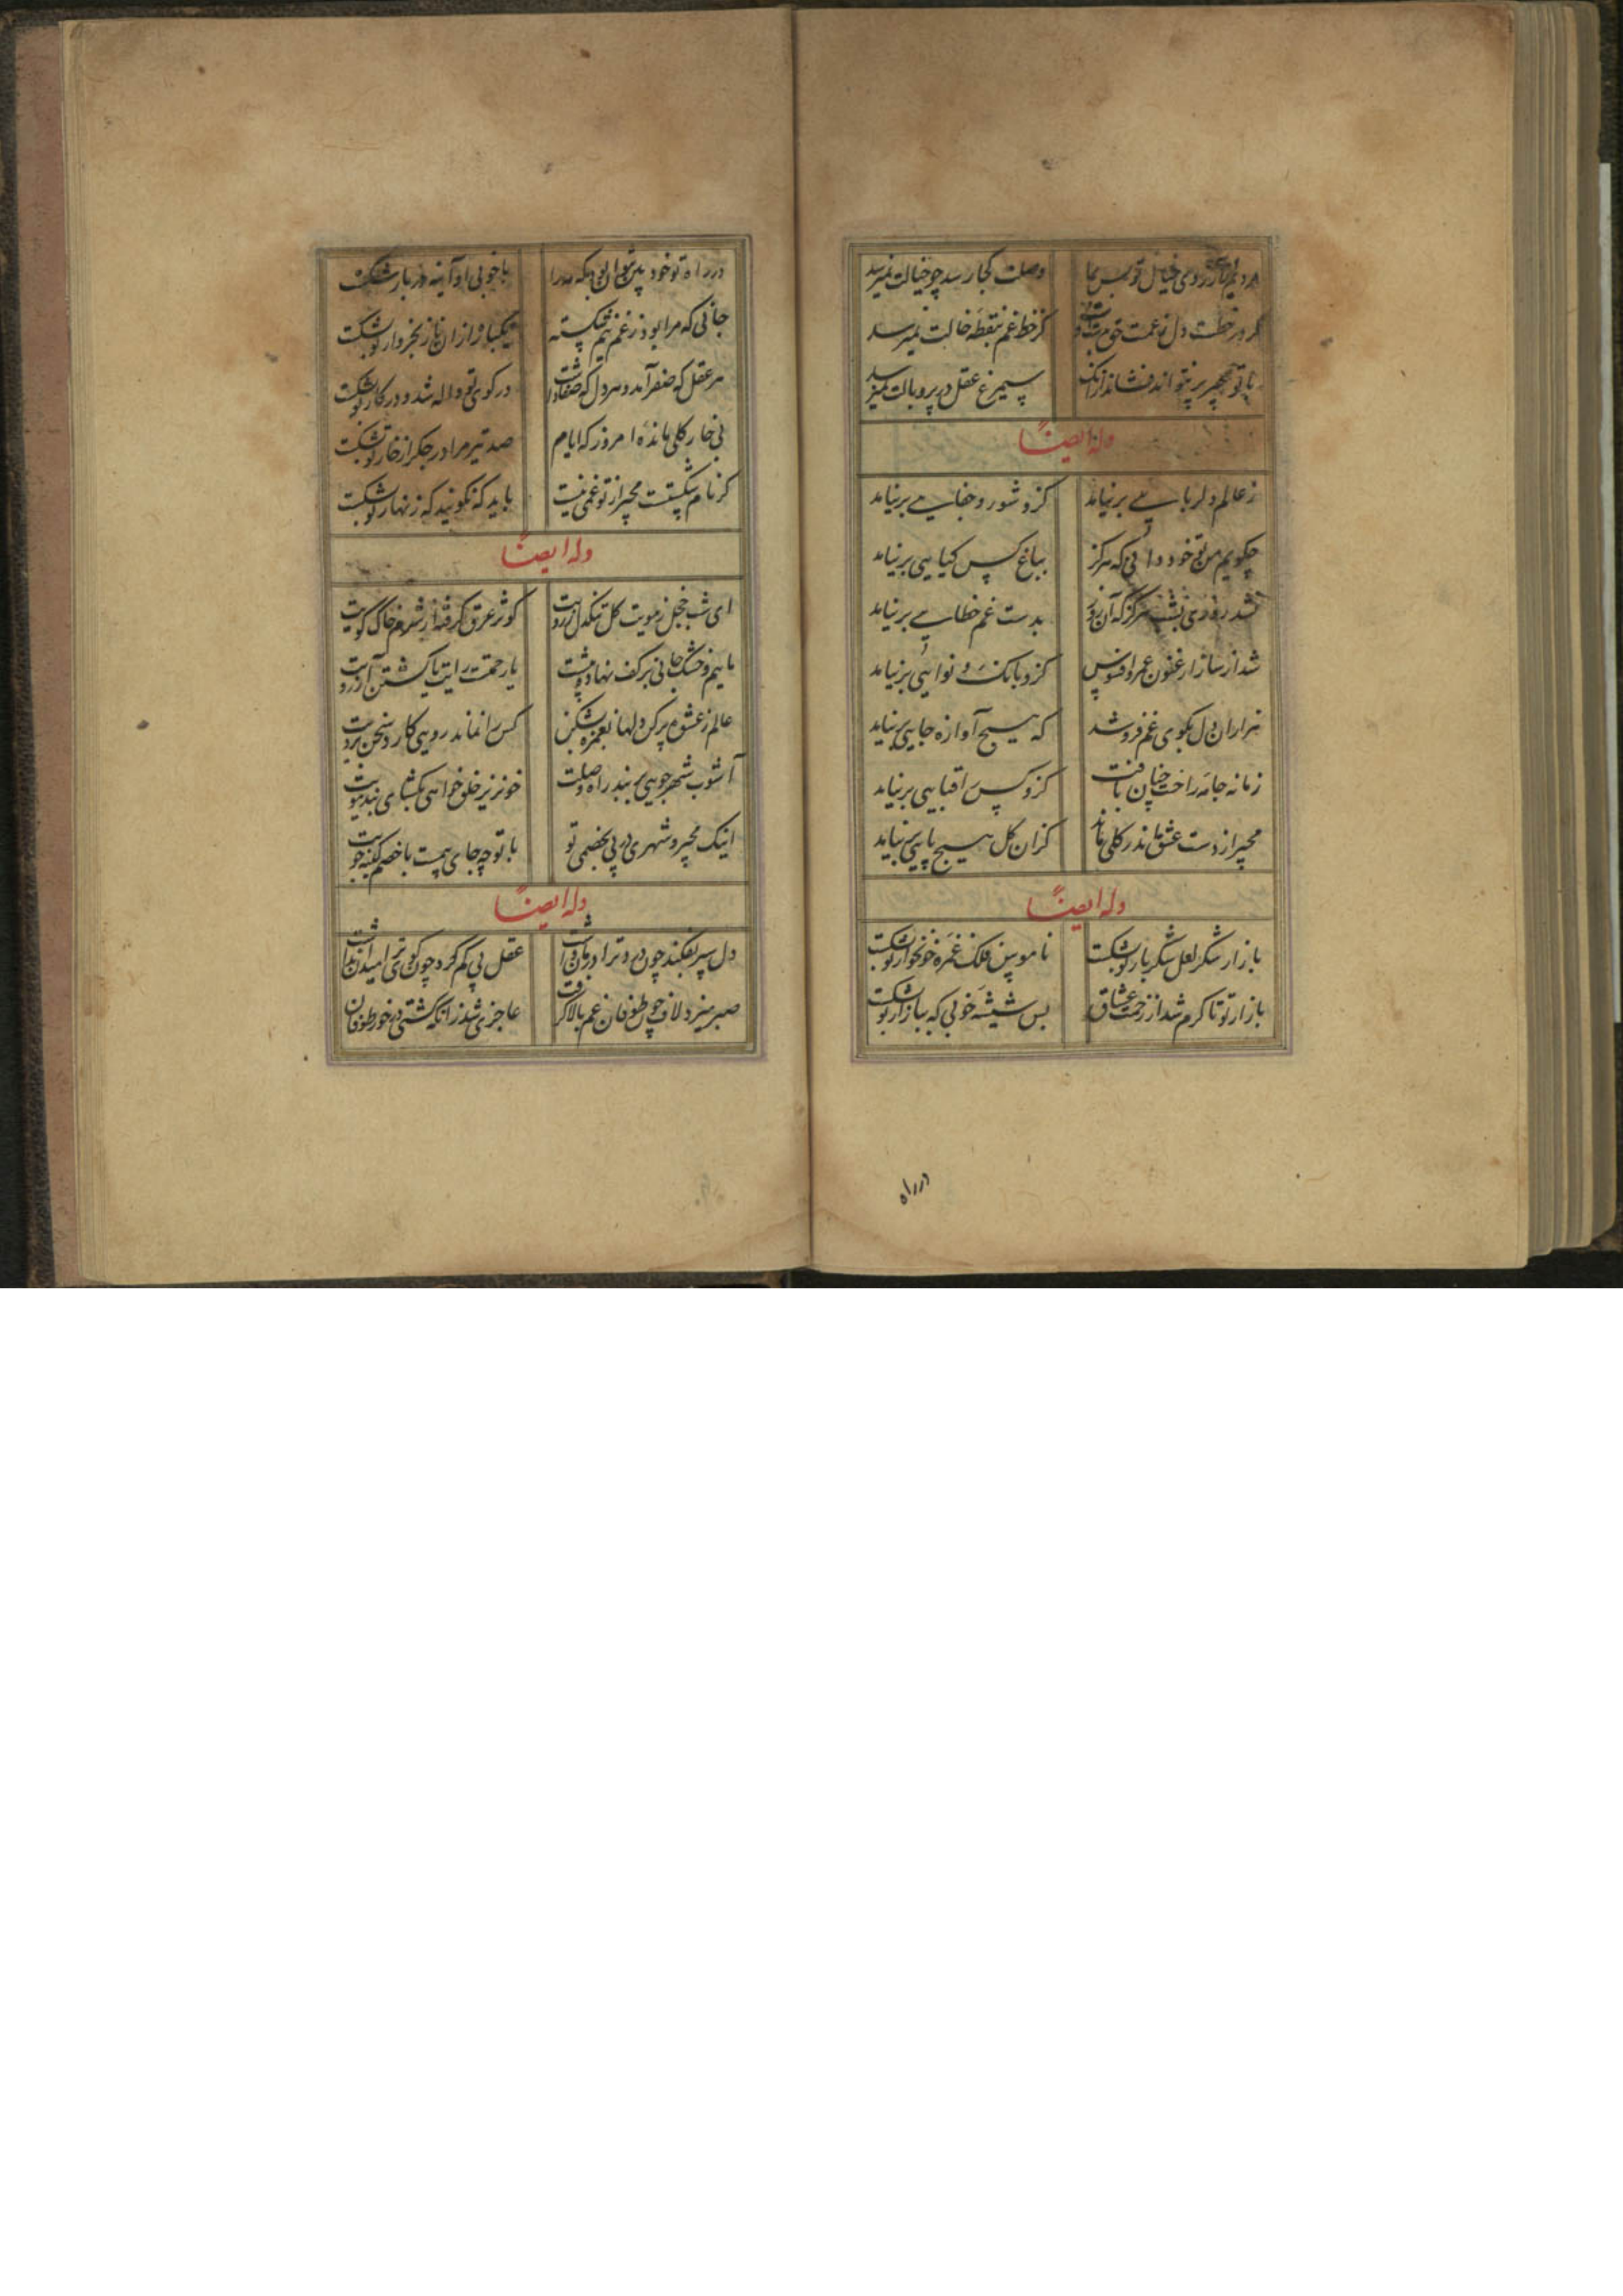 وصلت کجا رسد چو خیالت نمیرسد
کز خط غم بنقطه خالت نمیرسد
با تو مجیر بر نتواند فشاند ازانک سیمرغ عقل در پر و بالت نمیرسد
وله ایضاً
ز عالم دلربایی برنیاید کزو شور و جفایی برنیاید
چگویم من تو خود دانی که هرگز بباغ کس کیایی برنیاید
نشد روزی بشب هرگز که آن روز بدست غم خطایی برنیاید
شد از ساز ارغنون عمر و افسوس کزو بانک و نوایی برنیاید
هزاران دل بکوی غم فروشد که هیچ آوازه جایی برنیاید
زمانه جامه راحت چنان بافت کزو کس را قبایی برنیاید
مجیر از دست عشقش ماند در کلی کزان کل هیچ پایی برنیاید
وله ایضاً
بازار شکر لعل شکربار تو بشکست ناموس فلک غمزه خونخوار تو بشکست
بازار تو تا کرم شد از زحمت عشاق بس شیشه خوبی که ببازار تو بشکست
در راه
در راه تو خود با خوبی او آینه در بار تو بشکست
جانی که مرا بود ز غم نیم شکسته یکباره ازان ناز بخروار تو بشکست
هر عقل که صفرآمد و هر دل که صفا داشت در کوی تو واله شد و در کار تو بشکست
بی خار کلی مانده امروز که ایام صد تیر مرا در جکر از خار تو بشکست
کر نام شکستست مجیر از تو غمی نیست باید که نکویند که زنهار تو بشکست
وله ایضاً
ای شب خجل ز مویت کل تنکدل ز رویت کوثر عرق کرفته از شرم خاک کویت
ماییم و خشک جانی بر کف نهاده پیشت یا رحمتست رایت یا کشتن آرزویت
عالم ز عشق پر کن دلها بغمزه بشکن کس را نماند رویی کارد سخن برویت
آشوب شهر جویی بر بند راه وصلت خونریز خلق خواهی بکشای بند مویت
اینک مجیر و شهری در پی بخصمی تو با تو چه جای هست با خصم کینه جویت
وله ایضاً
دل سپر بفکند چون درد ترا درمان نداشت عقل پی کم کرد چون کوی ترا میدان نداشت
صبر میزد لاف چون طوفان غم بالا کرفت عاجزی شد زانکه کشتی در خور طوفان